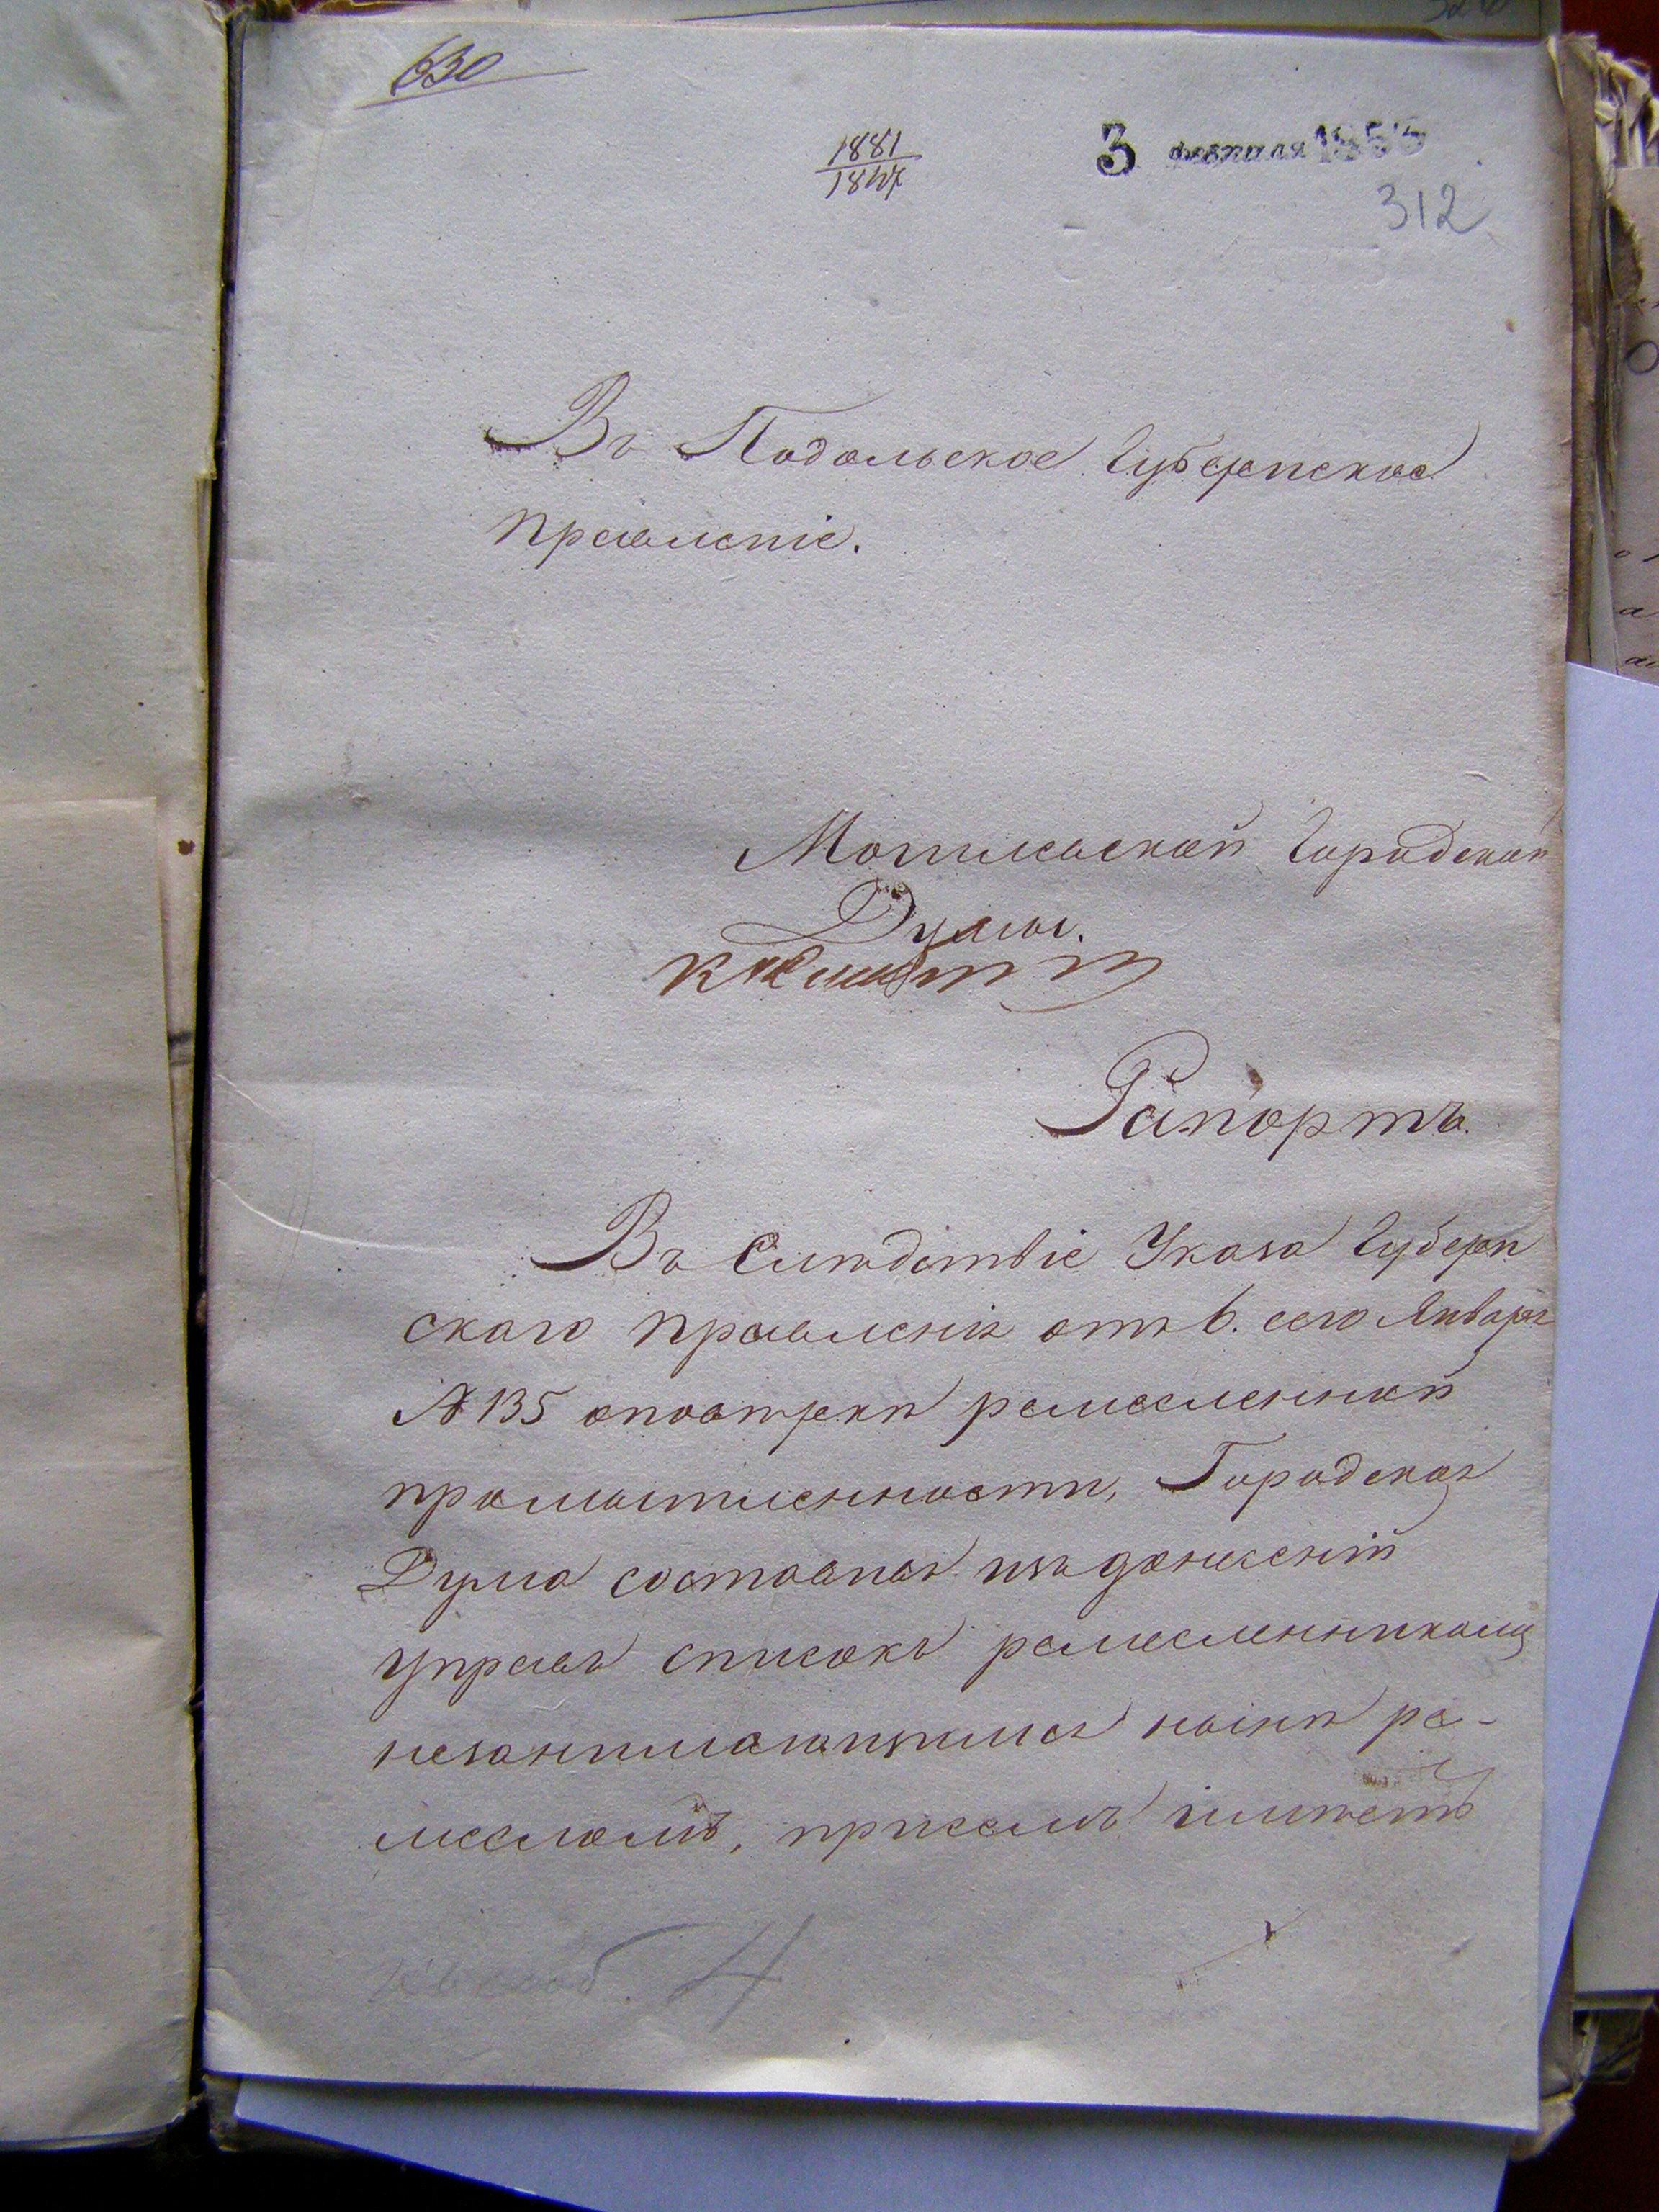 630
1881
1847
3 февраля 1853
312
Въ Подольское Губернское
Правленіе.
Могилевской Городской
Думы.
Рапортъ.
Въ Слѣдствіе Указа Губерн
скаго Правленія отъ 6. сего Января
№ 135 о повѣрки ремесленной
промышленности, Городская
Дума составивъ изъ донесеній
управъ списокъ ремесленникамъ
незанимающимся нынѣ ре-
месломъ, присемъ имѣетъ
4